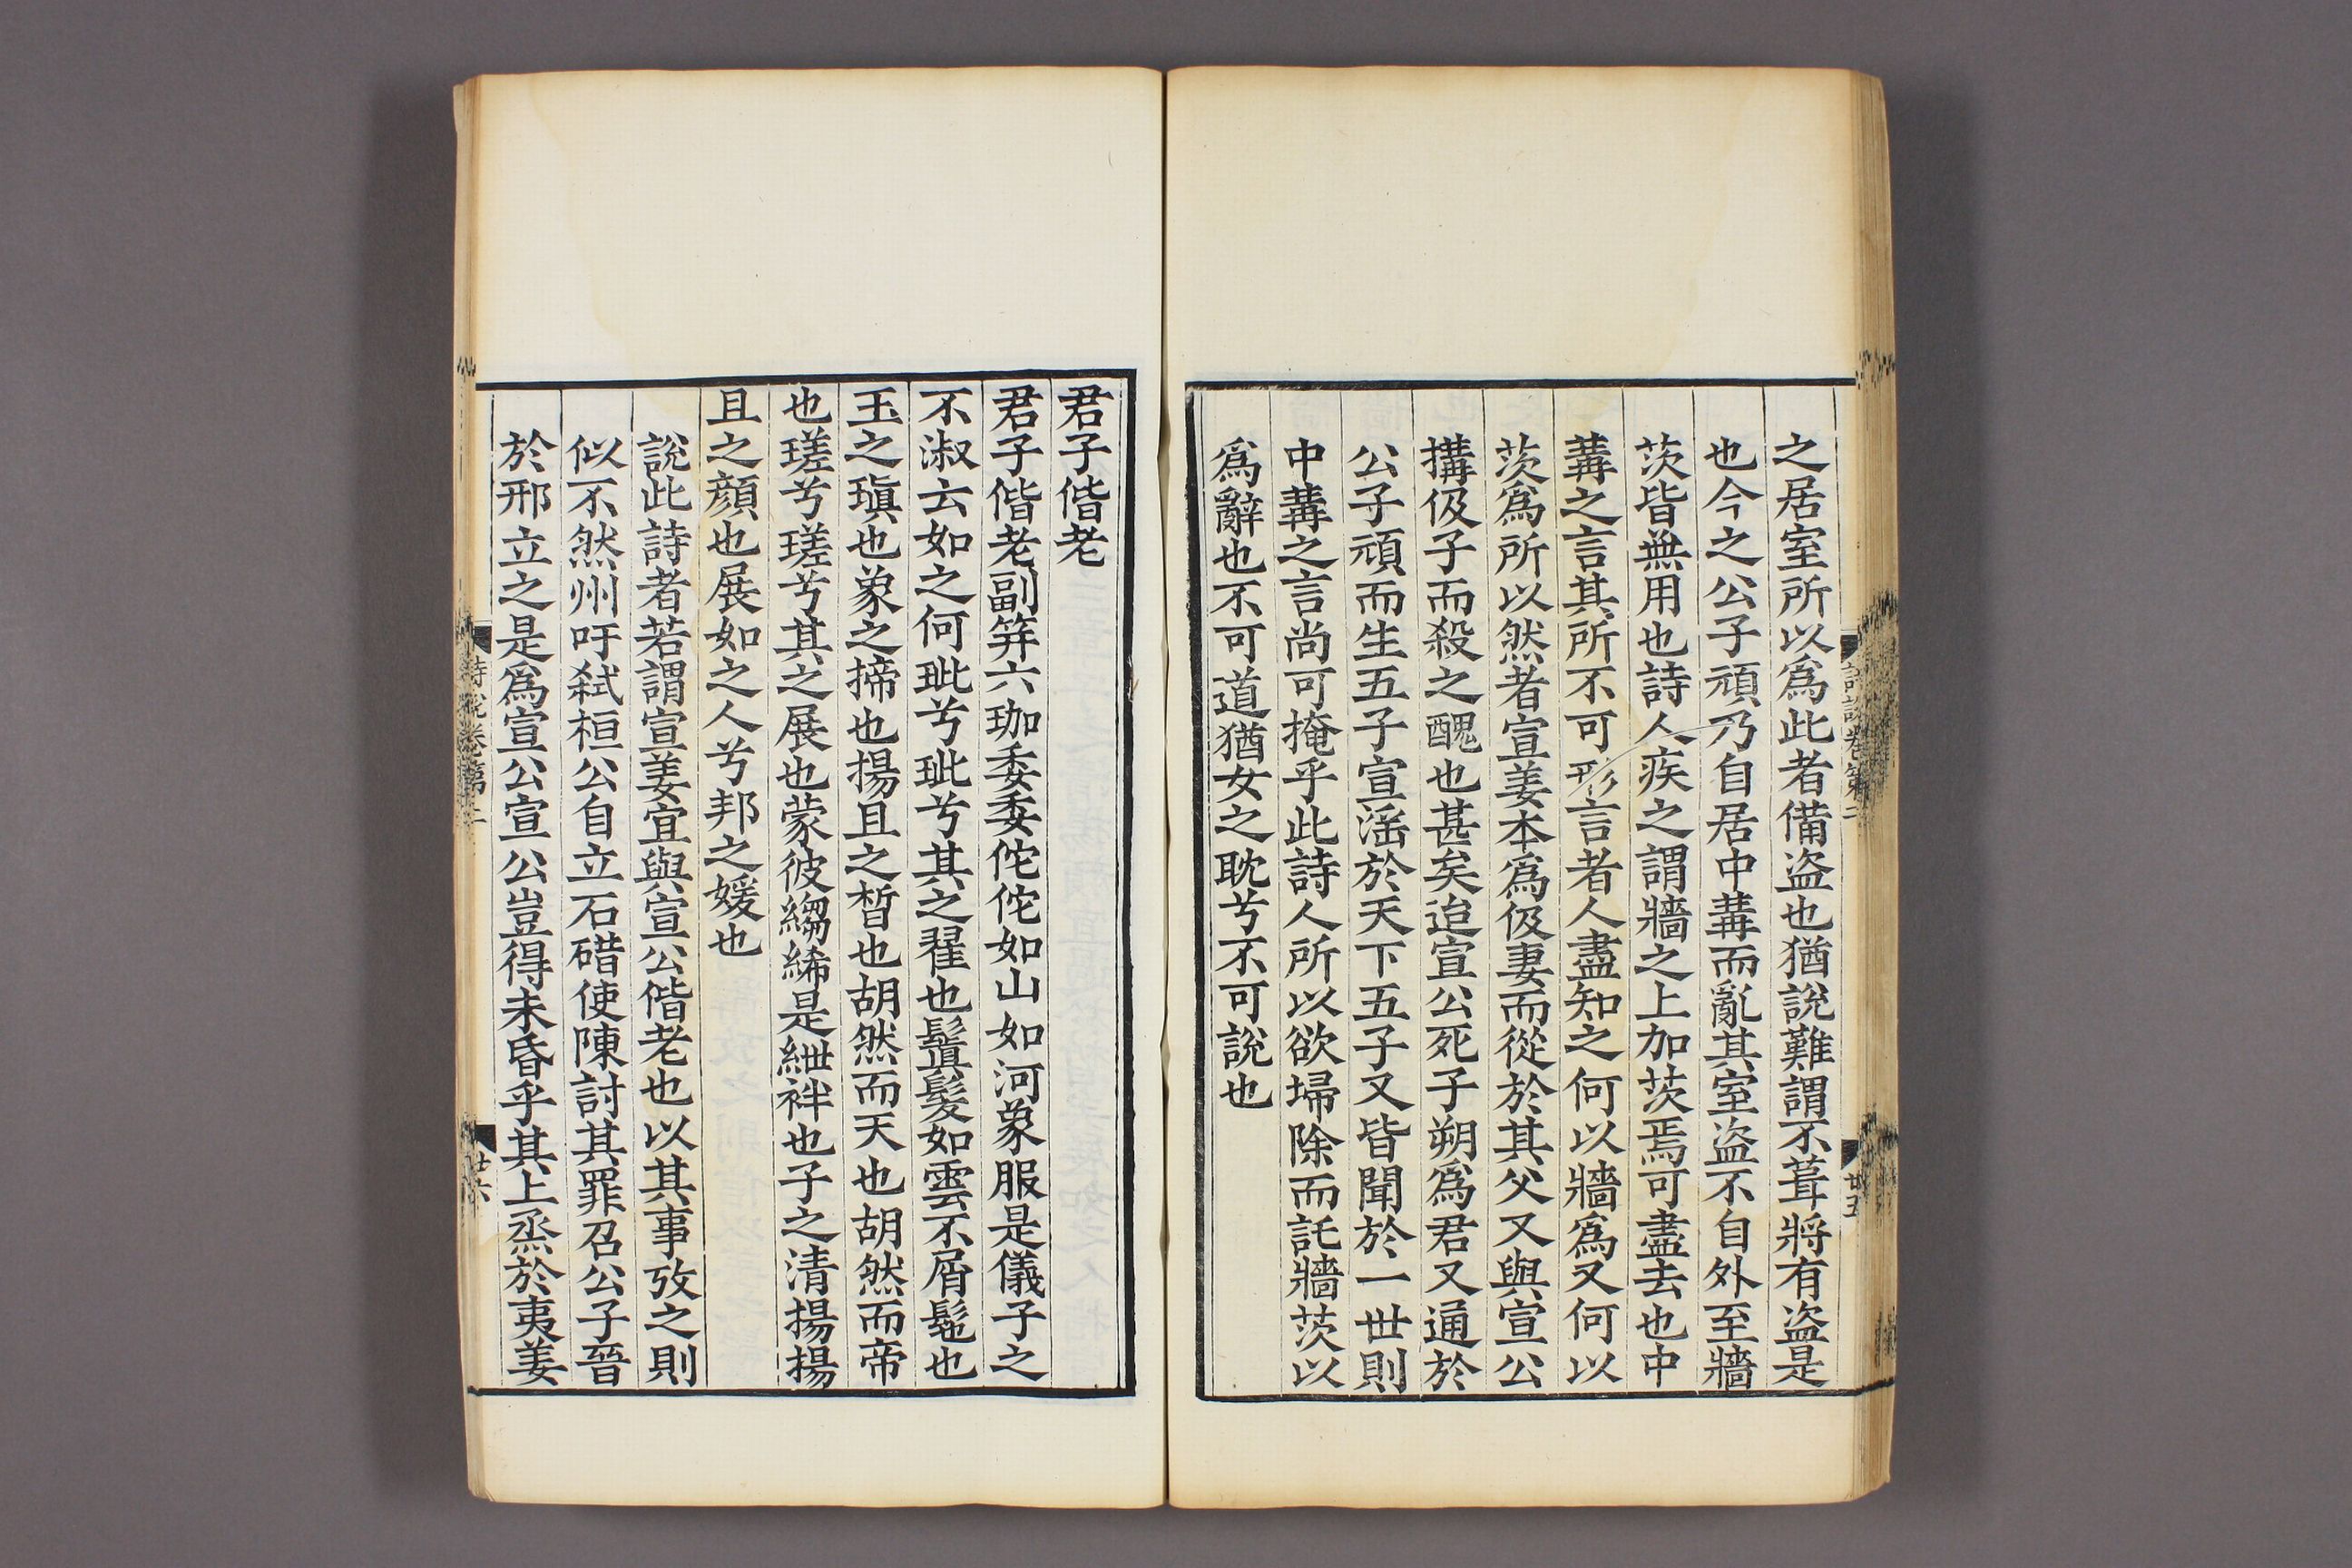 之居室所以爲此者備盜也猶說難謂不葺將有盜是
也今之公子頑乃自居中冓而亂其室盜不自外至牆
茨皆無用也詩人疾之謂牆之上加茨焉可盡去也中
冓之言其所不可形言者人盡知之何以牆爲又何以
茨爲所以然者宣姜本爲伋妻而從於其父又與宣公
搆伋子而殺之醜也甚矣迨宣公死子朔爲君又通於
公子頑而生五子宣滛於天下五子又皆聞於一世則
中冓之言尚可掩乎此詩人所以欲埽除而託牆茨以
爲辭也不可道猶女之耽兮不可說也
君子偕老
君子偕老副筓六珈委委佗佗如山如河象服是儀子之
不淑云如之何玼兮玼兮其之翟也鬒髮如雲不屑髢也
玉之瑱也象之揥也揚且之晳也胡然而天也胡然而帝
也瑳兮瑳兮其之展也蒙彼縐絺是紲袢也子之清揚揚
且之顏也展如之人兮邦之媛也
說此詩者若謂宣姜宜與宣公偕老也以其事攷之則
似不然州吁弑桓公自立石碏使陳討其罪召公子晉
於邢立之是爲宣公宣公豈得未昏乎其上烝於夷姜
詩說卷第二
廿六